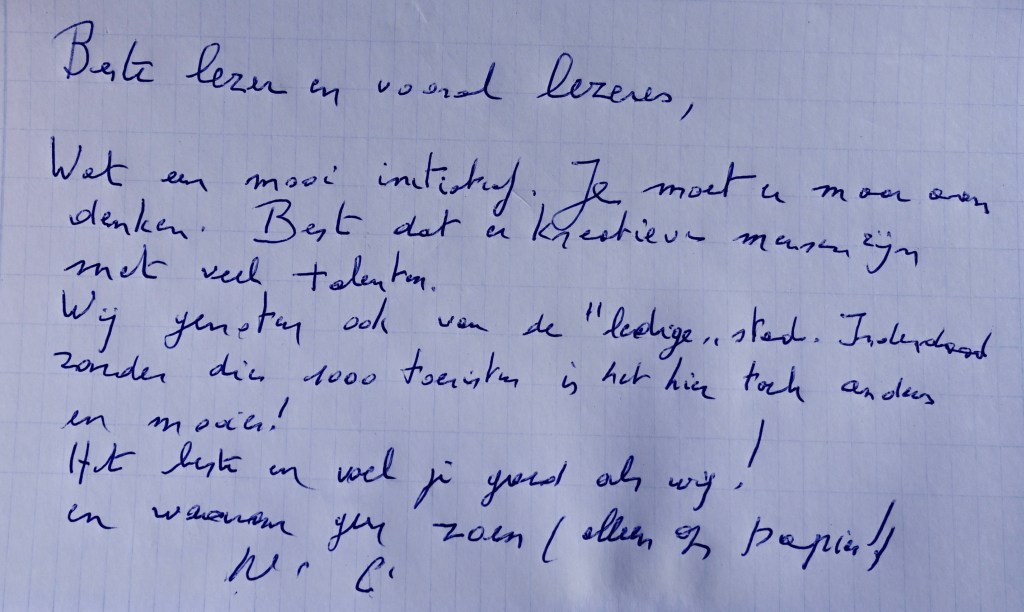 Beste lezer en vooral lezeres,
Wat een mooi initiatief. Je moet er maar aan
denken. Best dat er kreatieve mensen zijn
met veel talenten.
Wij genieten ook van de "ledige„ stad. Inderdaad
zonder die 1000 toeristen is het hier toch anders
en mooier!
Het beste en voel je goed als wij!
en waarom geen zoen (alleen op papier!)
N. C.